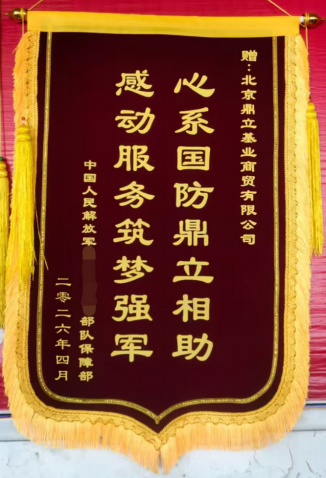 赠:北京鼎立基业商贸有限公司
心系国防鼎立相助
感动服务筑梦强军
中国人民解放军
部队保障部
二零二六年四月